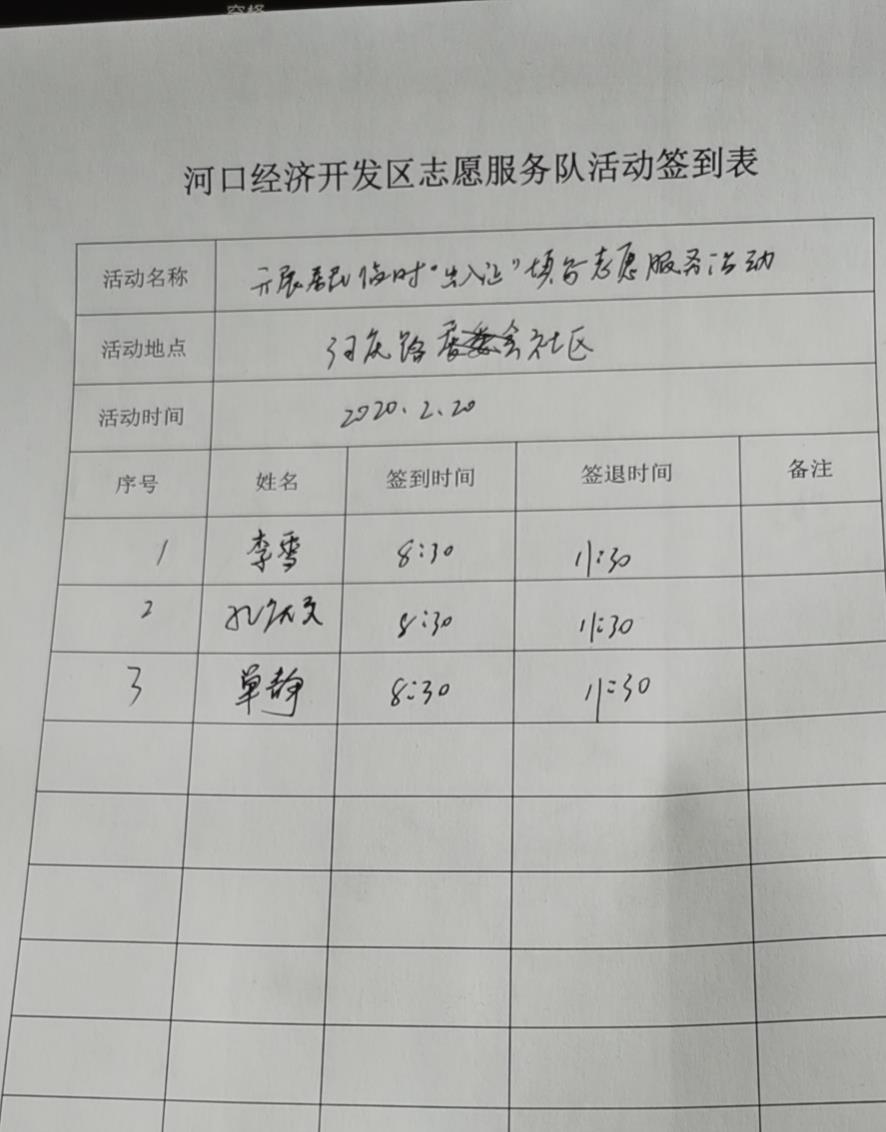 河口经济开发区志愿服务队活动签到表
活动名称 开展居民临时“出入证”填写志愿服务活动
活动地点 河庆路居委会社区
活动时间 2020.2.20
序号 姓名 签到时间 签退时间 备注
1 李雪 8:30 11:30
2 8:30 11:30
3 单静 8:30 11:30